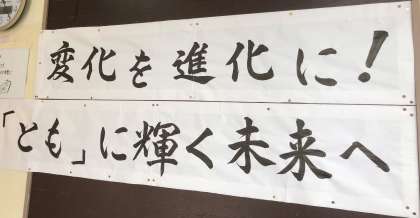 変化を進化に!
「とも」に輝く未来へ